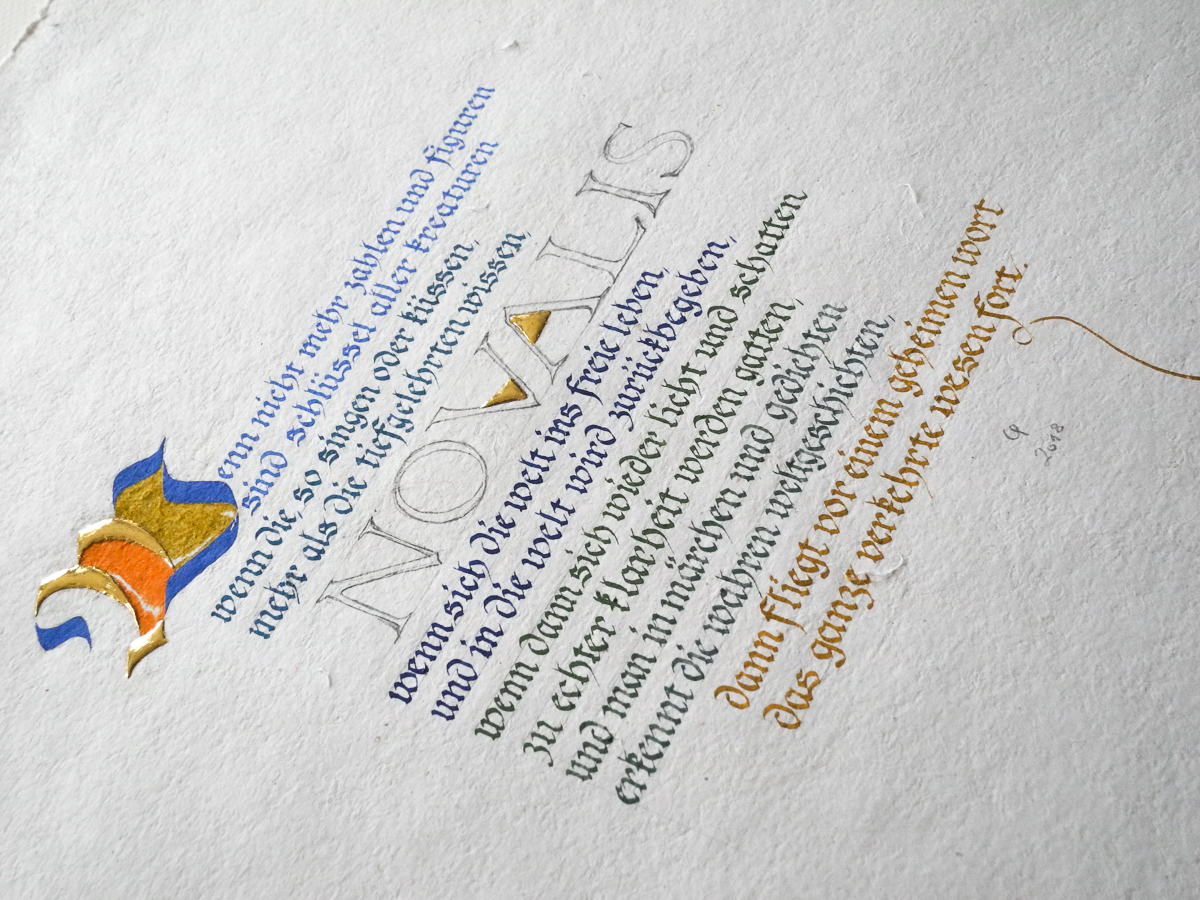 Wenn nicht mehr zahlen und figuren
sind schlüssel aller kreaturen
wenn die, so singen oder küssen,
mehr als die tiefgelehrten wissen,
NOVALIS
wenn sich die welt ins freie leben,
und in die welt wird zurückbegeben,
wenn dann sich wieder licht und schatten
zu echter klarheit werden gatten,
und man in märchen und gedichten
erkennt die wahren weltgeschichten,
dann fliegt vor einem geheimen wort
das ganze verkehrte wesen fort.
2018